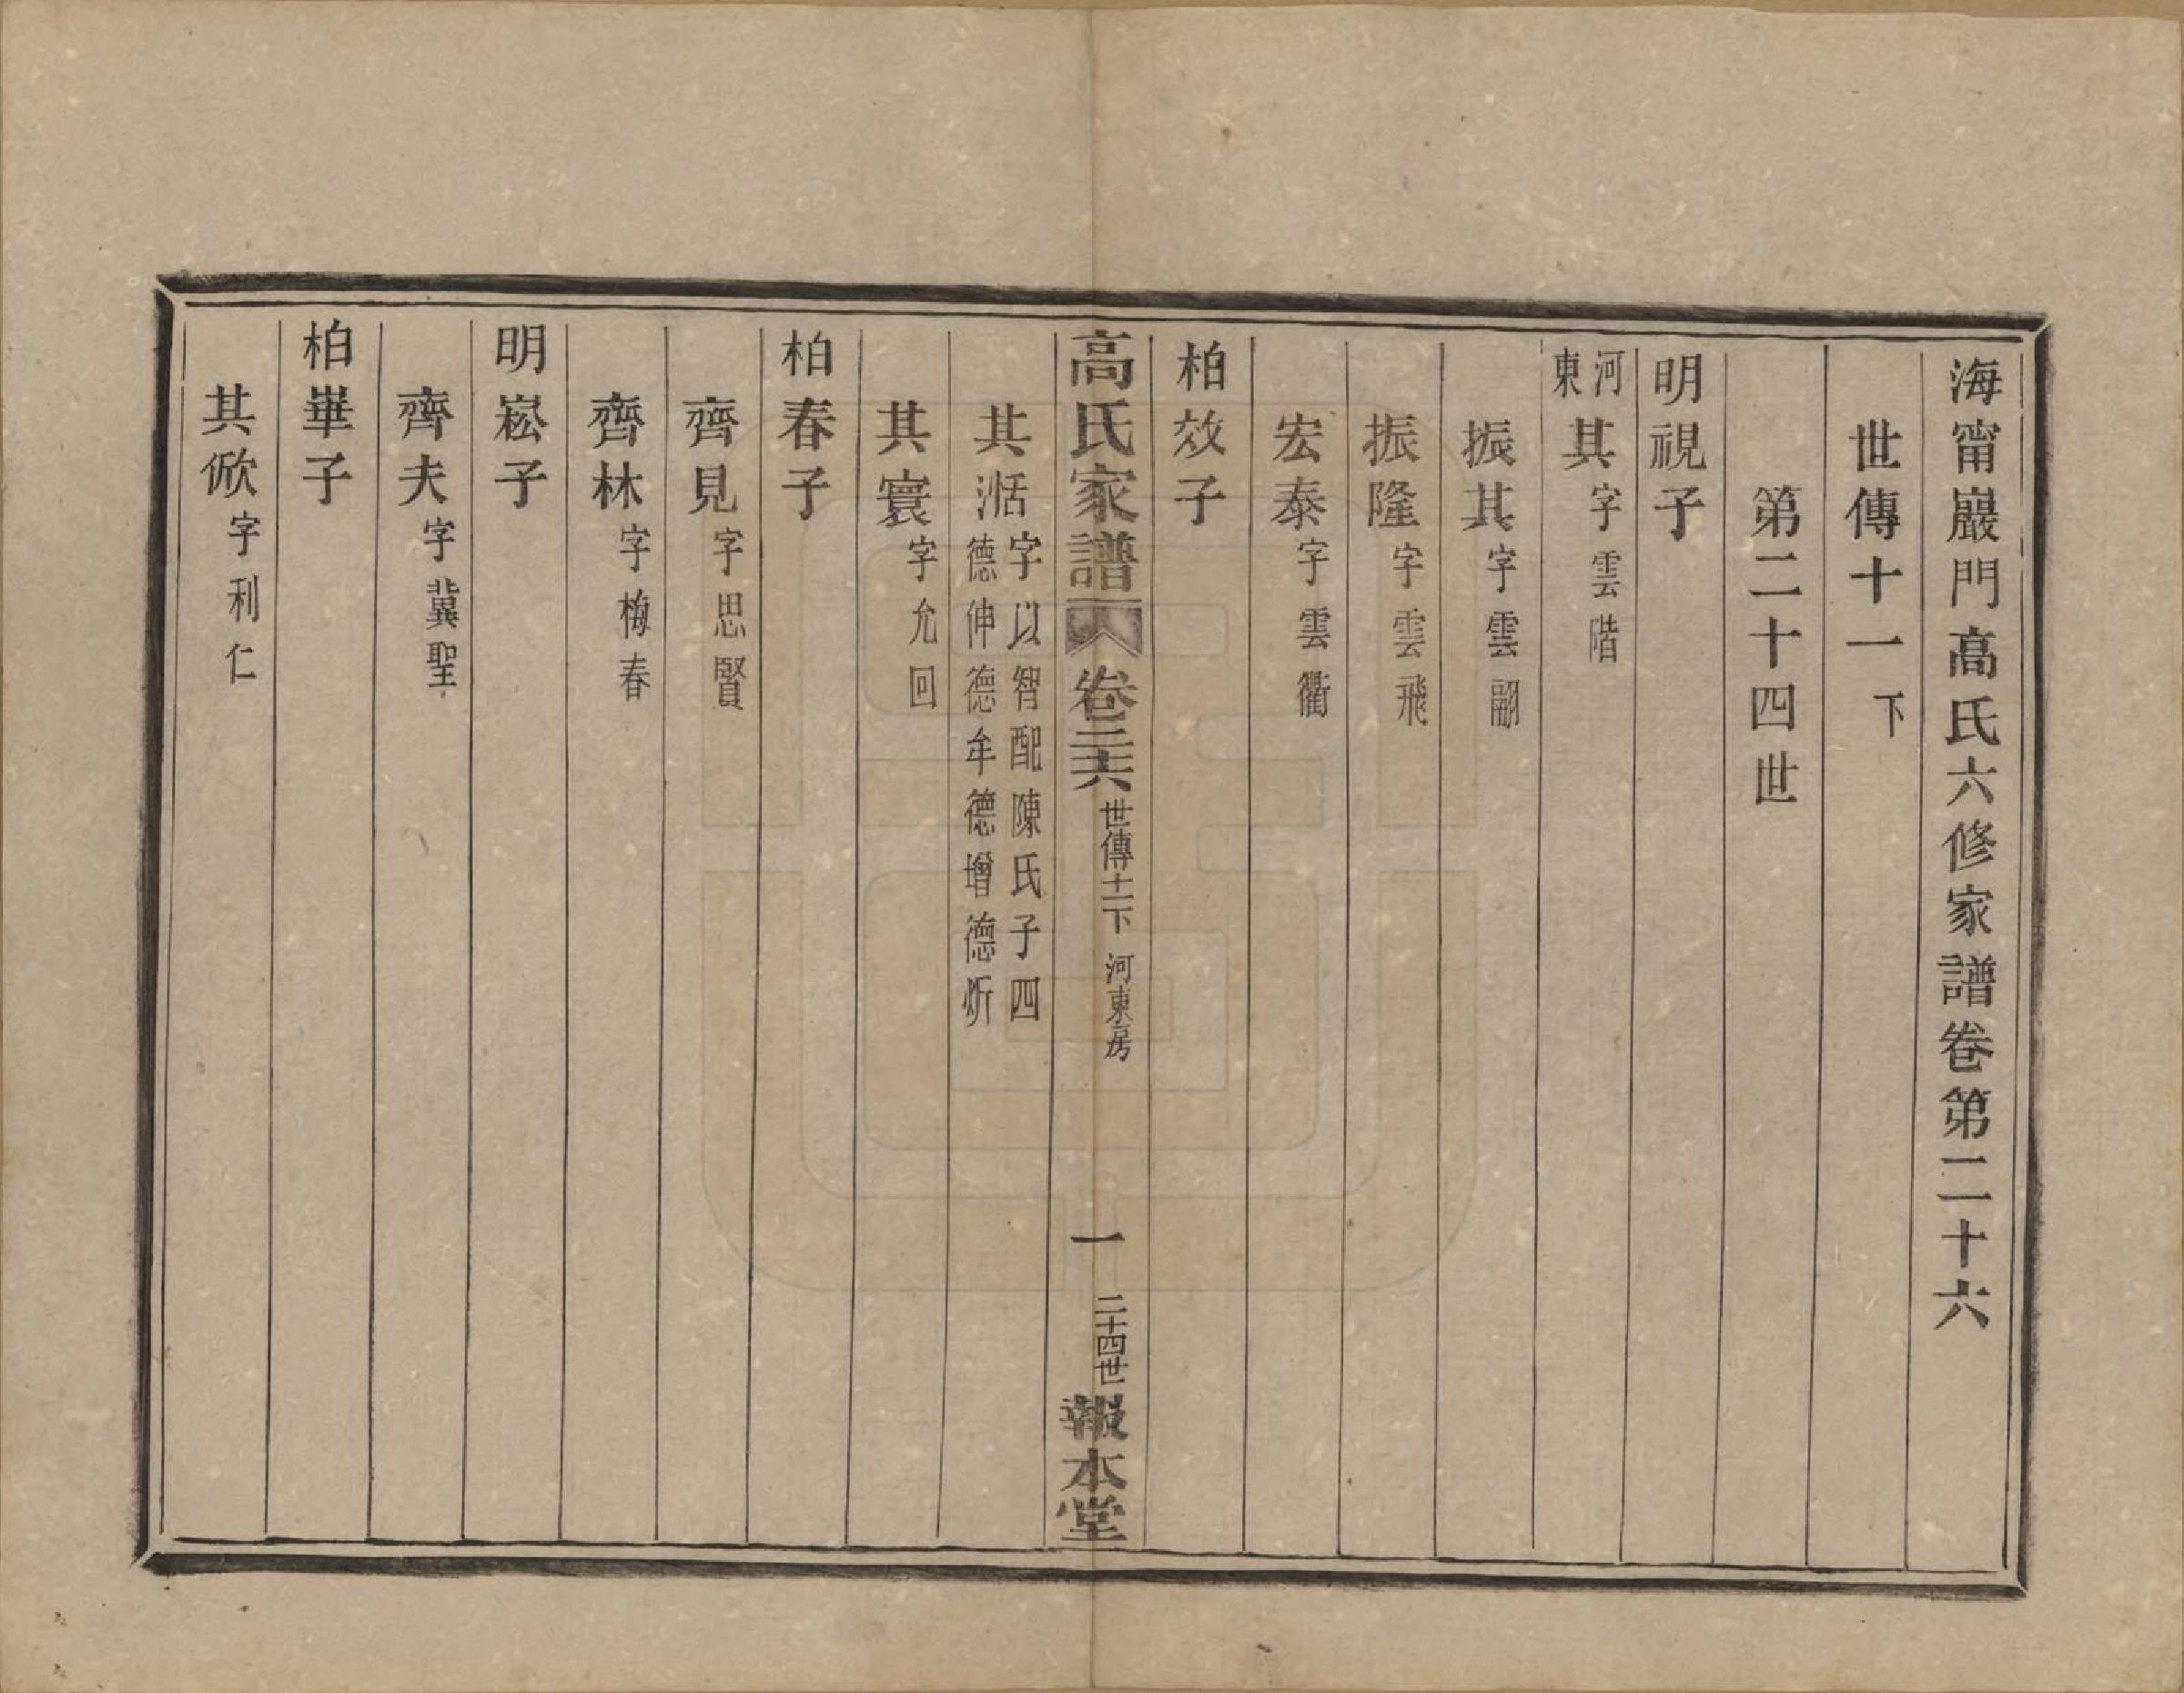 海甯巖門高氏六修家譜卷第二十六
世傳十一下
第二十四世
明視子
河東其字雲階
振其字雲翮
振隆字雲飛
宏泰字雲衢
柏效子
高氏家譜 卷二十六 世傳十一下 河東房 一 二十四世 報本堂
其湉字以智配陳氏子四
德伸德牟德增德炘
其寰字允回
柏春子
齊見字思賢
齊林字梅春
明崧子
齊夫字冀聖
柏崋子
其俽字利仁